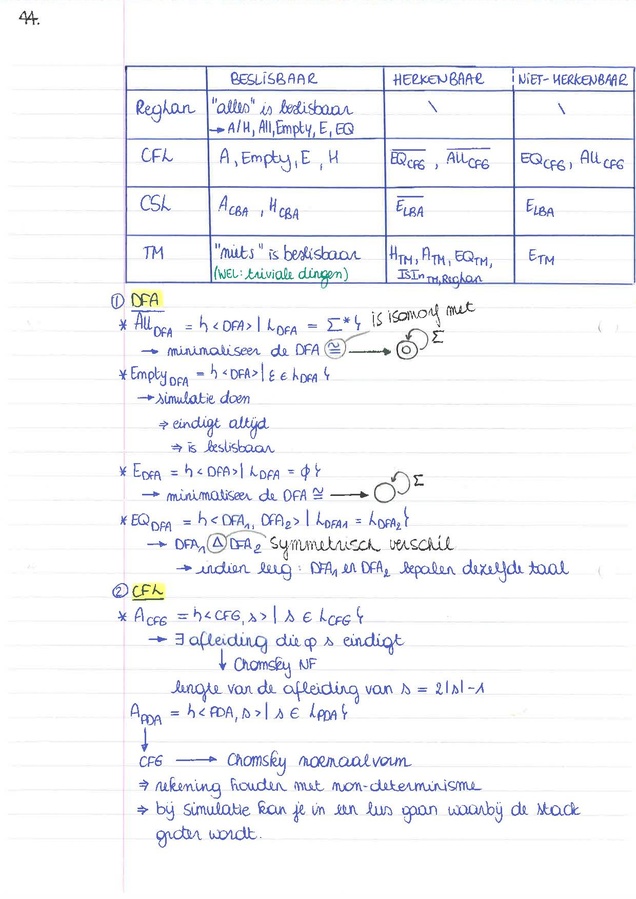 44.
BESLISBAAR HERKENBAAR NIET-HERKENBAAR
Reghan "alles" is beslisbaar \ \
→ A/H, All, Empty, E, EQ
CFL A, Empty, E, H E̅Q̅C̅F̅G̅, A̅l̅l̅C̅F̅G̅ EQCFG, AllCFG
CSL ACBA, HCBA E̅L̅B̅A̅ ELBA
TM "niets" is beslisbaar HTM, ATM, EQTM, ETM
(WEL: triviale dingen) ISInTM,Reghan
① DFA
* AllDFA = {<DFA> | LDFA = Σ*} is isomorf met
→ minimaliseer de DFA ≅ → Σ
* EmptyDFA = {<DFA> | ε ∈ LDFA}
→ simulatie doen
⇒ eindigt altijd
⇒ is beslisbaar
* EDFA = {<DFA> | LDFA = ϕ}
→ minimaliseer de DFA ≅ → Σ
* EQDFA = {<DFA1, DFA2> | LDFA1 = LDFA2}
→ DFA1 Δ DFA2 symmetrisch verschil
→ indien leeg: DFA1 en DFA2 bepalen dezelfde taal
② CFL
* ACFG = {<CFG, s> | s ∈ LCFG}
→ ∃ afleiding die op s eindigt
↓ Chomsky NF
lengte van de afleiding van s = 2|s|-1
APDA = {<PDA, s> | s ∈ LPDA}
↓
CFG → Chomsky normaalvorm
⇒ rekening houden met non-determinisme
⇒ bij simulatie kan je in een lus gaan waarbij de stack
groter wordt.